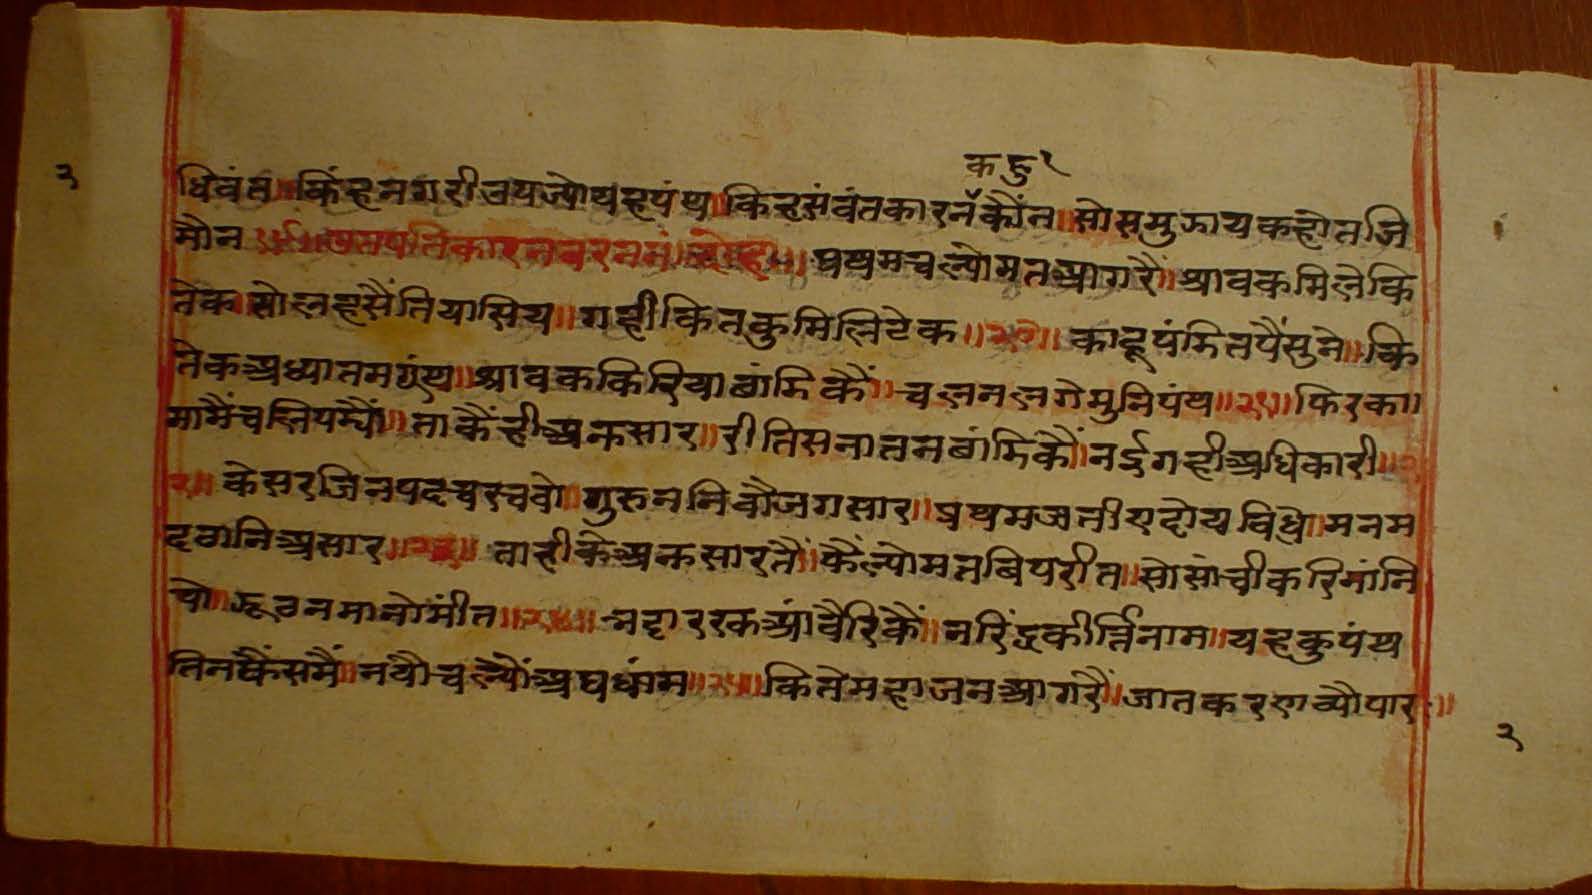 कछु१
२
धिवंत॥ किंह नगरी उपज्यो यह पंथ॥ किह संवंत कारन कौंन॥ सो समुझाय कहो तजि
मौन ॥१९॥ उतपतिकारन बरननं॥ दोहा॥ प्रथम चल्यो मत आगरै॥ श्रावक मिले कि
तेक॥ सोलह सैं तियासिय॥ गही कितकु मिलि टेक॥२०॥ काहू पंमित पैं सुने॥ कि
तेक अध्यातम ग्रंथ॥ श्रावक किरिया छांमि कैं॥ चलन लगे मुनि पंथ॥२१॥ फिर का॥
मामैं चलि पर्यौ॥ ताकै ही अनुसार॥ रीति सनातन छांमि कौं॥ नई गही अधिकारी॥२
२॥ केसर जिनपद चरचवो॥ गुरु नमिवौ जगसार॥ प्रथम तजी ए दोय विधि॥ मन म
द ठानि असार॥२३॥ ताही के अनुसार तैं॥ फैल्यो मत बिपरीत॥ सो सांची करि मांनि
यो॥ झूठ न मानो मींत॥२४॥ भट्टारक आंवैरि कैं॥ नरिंद्रकीर्त्ति नाम॥ यह कुपंथ
तिनकै समैं॥ नयौ चल्यौं अघ धांम॥२५॥ किते महाजन आगरैं॥ जात करण व्यौपार॥
२